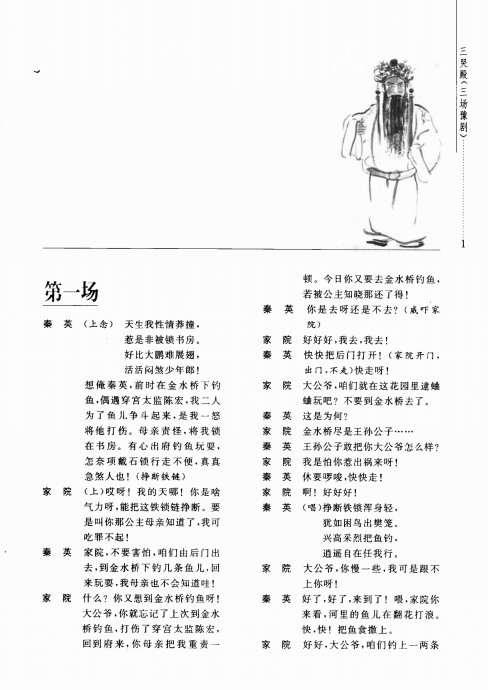 三哭殿(三场豫剧)
1
第一场
秦 英 (上念) 天生我性情莽撞，
惹是非被锁书房。
好比大鹏难展翅，
活活闷煞少年郎！
想俺秦英，前时在金水桥下钓
鱼，偶遇穿宫太监陈宏，我二人
为了鱼儿争斗起来，是我一怒
将他打伤。母亲责怪，将我锁
在书房。有心出府钓鱼玩耍，
怎奈项戴石锁行走不便，真真
急煞人也！(挣断铁链)
家 院 (上)哎呀！我的天哪！你是啥
气力呀，能把这铁锁链挣断。要
是叫你那公主母亲知道了，我可
吃罪不起！
秦 英 家院，不要害怕，咱们由后门出
去，到金水桥下钓几条鱼儿，回
来玩耍，我母亲也不会知道哇！
家 院 什么？你又想到金水桥钓鱼呀！
大公爷，你就忘记了上次到金水
桥钓鱼，打伤了穿宫太监陈宏，
回到府来，你母亲把我重责一
顿。今日你又要去金水桥钓鱼，
若被公主知晓那还了得！
秦 英 你是去呀还是不去？(威吓家
院)
家 院 好好好，我去，我去！
秦 英 快快把后门打开！(家院开门，
出门，不走)快走呀！
家 院 大公爷，咱们就在这花园里逮蛐
蛐玩吧？不要到金水桥去了。
秦 英 这是为何？
家 院 金水桥尽是王孙公子……
秦 英 王孙公子敢把你大公爷怎么样？
家 院 我是怕你惹出祸来呀！
秦 英 休要啰唆，快快走！
家 院 啊！好好好！
秦 英 (唱)挣断铁锁浑身轻，
犹如困鸟出樊笼。
兴高采烈把鱼钓，
逍遥自在任我行。
家 院 大公爷，你慢一些，我可是跟不
上你呀！
秦 英 好了，好了，来到了！喂，家院你
来看，河里的鱼儿在翻花打浪。
快，快！把鱼食撒上。
家 院 好好，大公爷，咱们钓上一两条